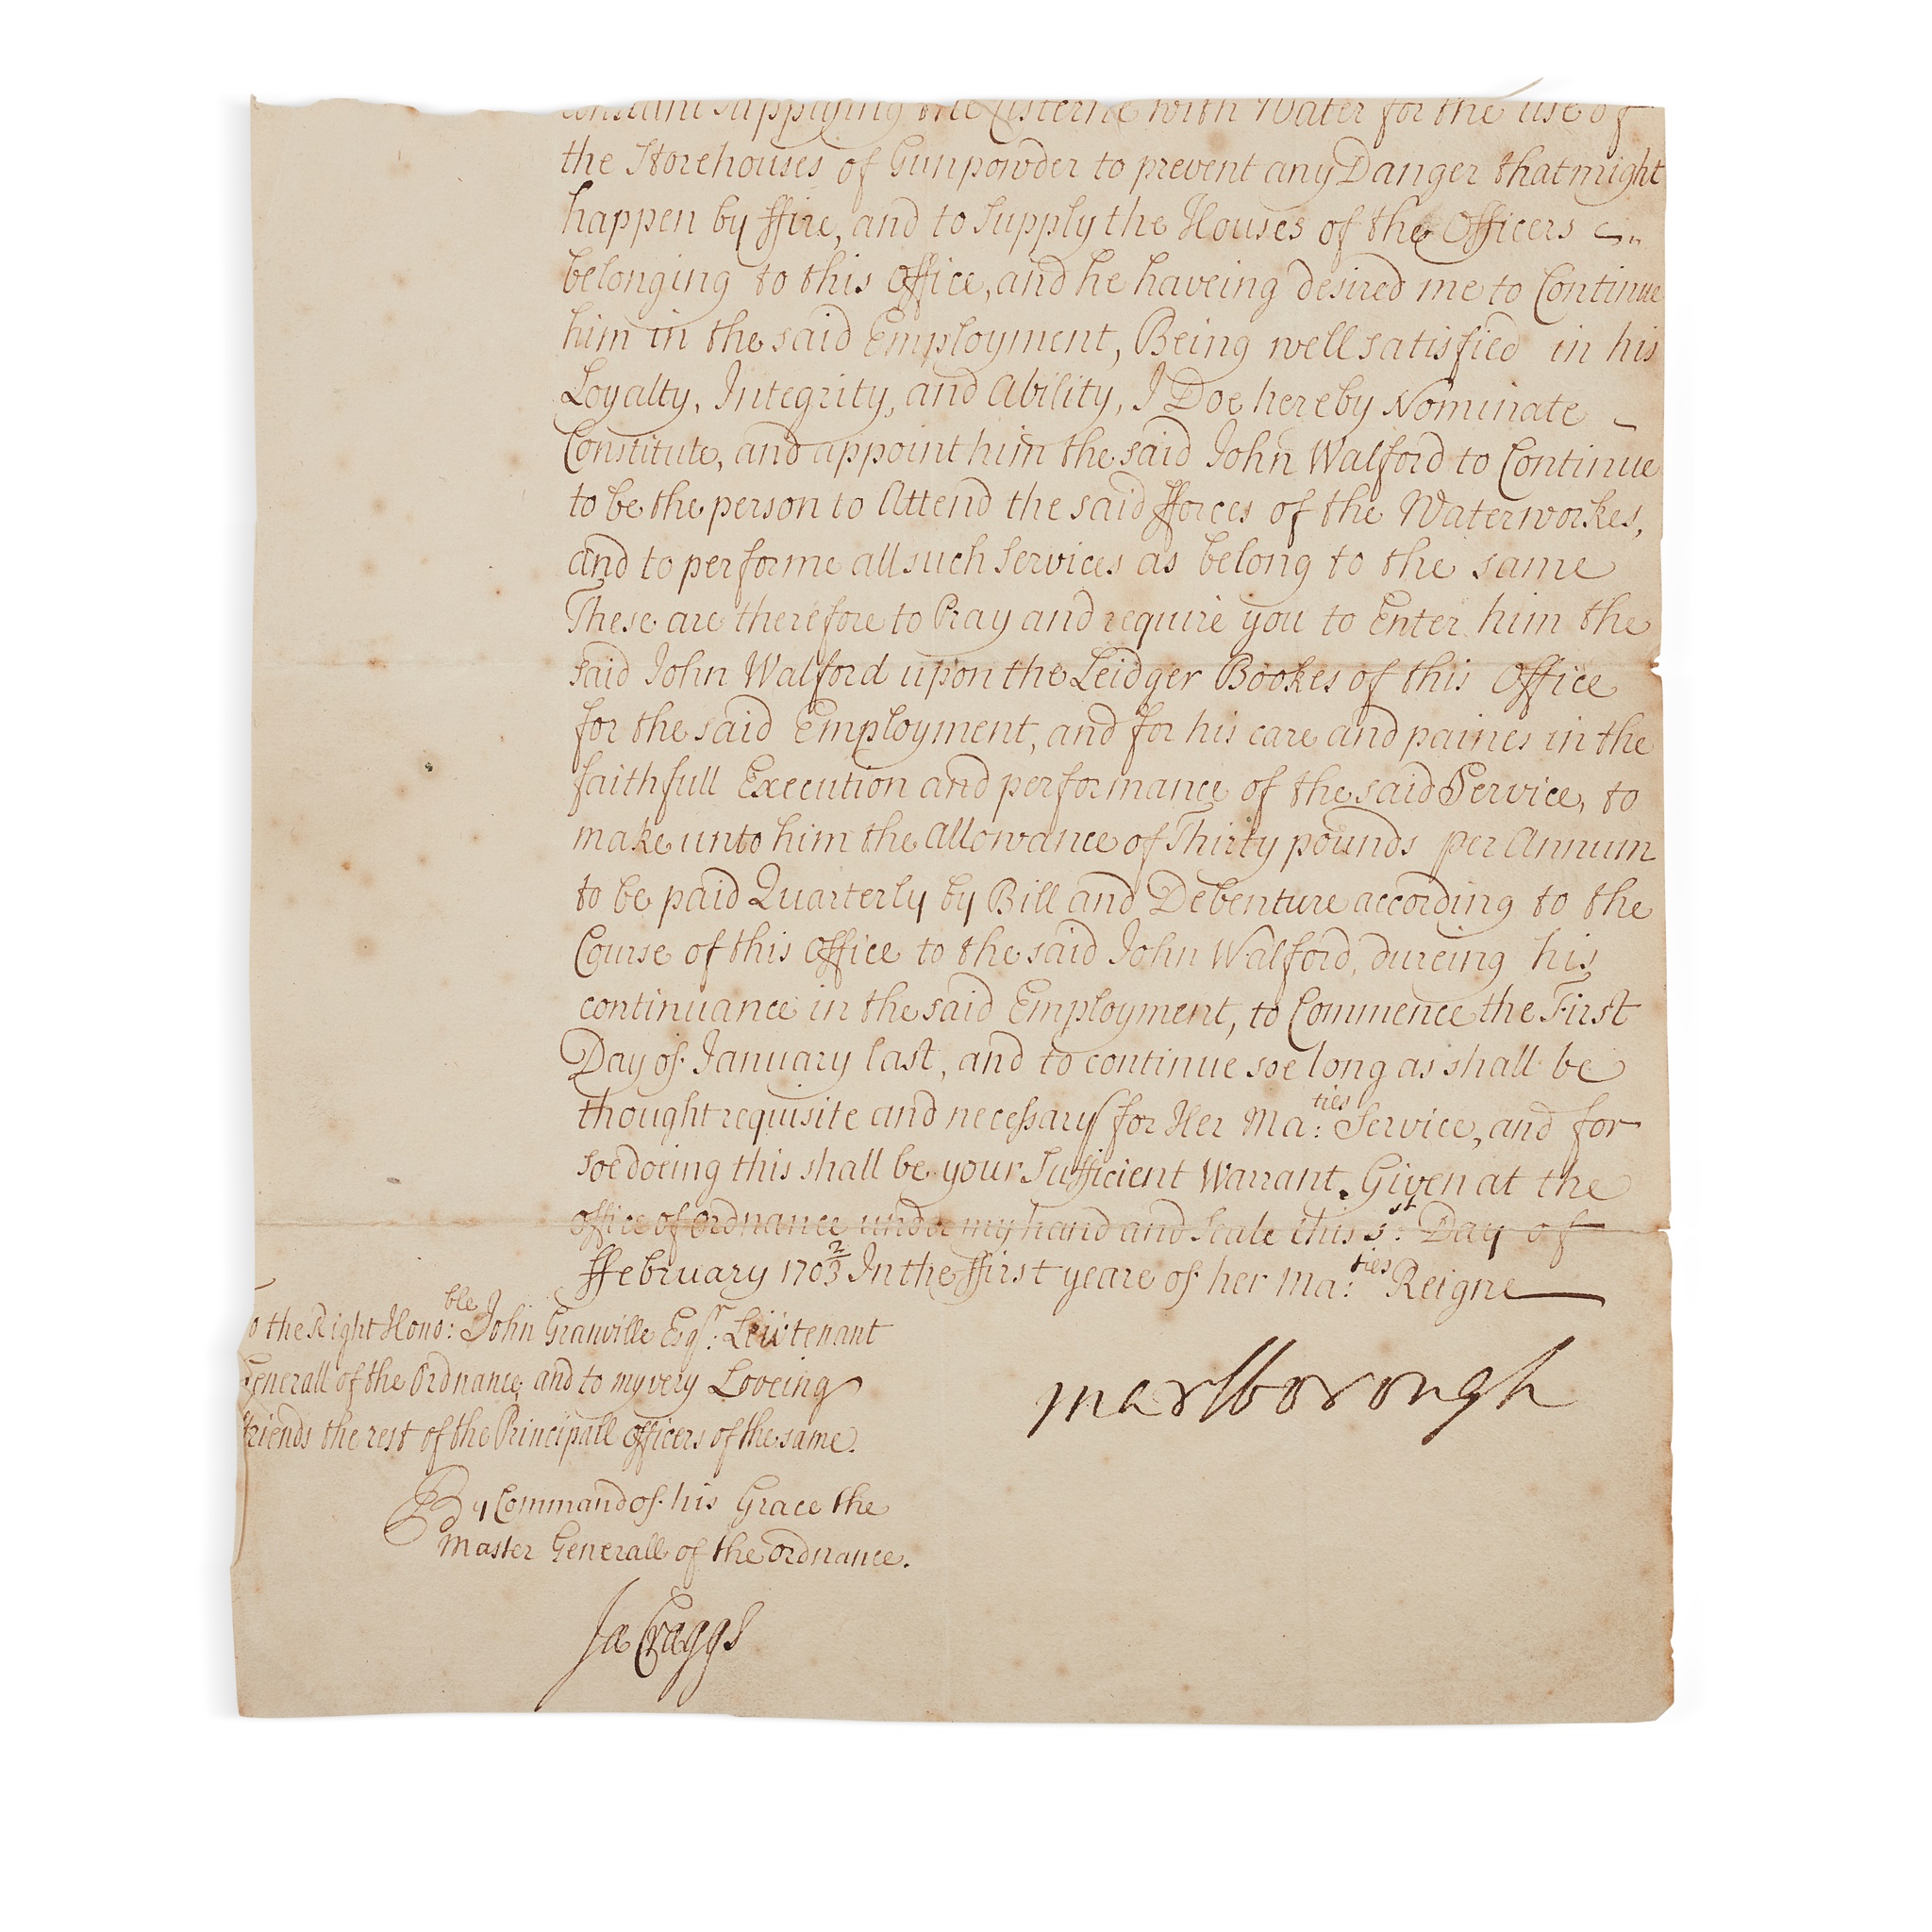 Constant Supplying the Cisterne with Water for the use of
the Storehouses of Gunpowder to prevent any Danger that might
happen by ffire, and to Supply the Houses of the Officers
belonging to this Office, and he haveing desired me to Continue
him in the said Employment, Being well satisfied in his
Loyalty, Integrity, and Ability, I Doe hereby Nominate
Constitute, and appoint him the said John Walford to Continue
to be the person to Attend the said fforces of the Waterworkes,
and to performe all such Services as belong to the same
These are therefore to Pray and require you to Enter him the
said John Walford upon the Leidger Bookes of this Office
for the said Employment, and for his care and paines in the
faithfull Execution and performance of the said Service, to
make unto him the Allowance of Thirty pounds per Annum
to be paid Quarterly by Bill and Debenture according to the
Course of this Office to the said John Walford, dureing his
continuance in the said Employment, to Commence the First
Day of January last, and to continue soe long as shall be
thought requisite and necessary for Her Ma:ties Service, and for
soe doeing this shall be your Sufficient Warrant. Given at the
office of Ordnance under my hand and Seale this Day of
ffebruary 1702/3 In the ffirst yeare of her Ma:ties Reigne
o the Right Hono:ble John Granville Esqr. Leiutenant
Generall of the Ordnance, and to my very Loveing
friends the rest of the Principall Officers of the same.
marlborough
By Command of his Grace the
Master Generall of the Ordnance.
Ja Craggs